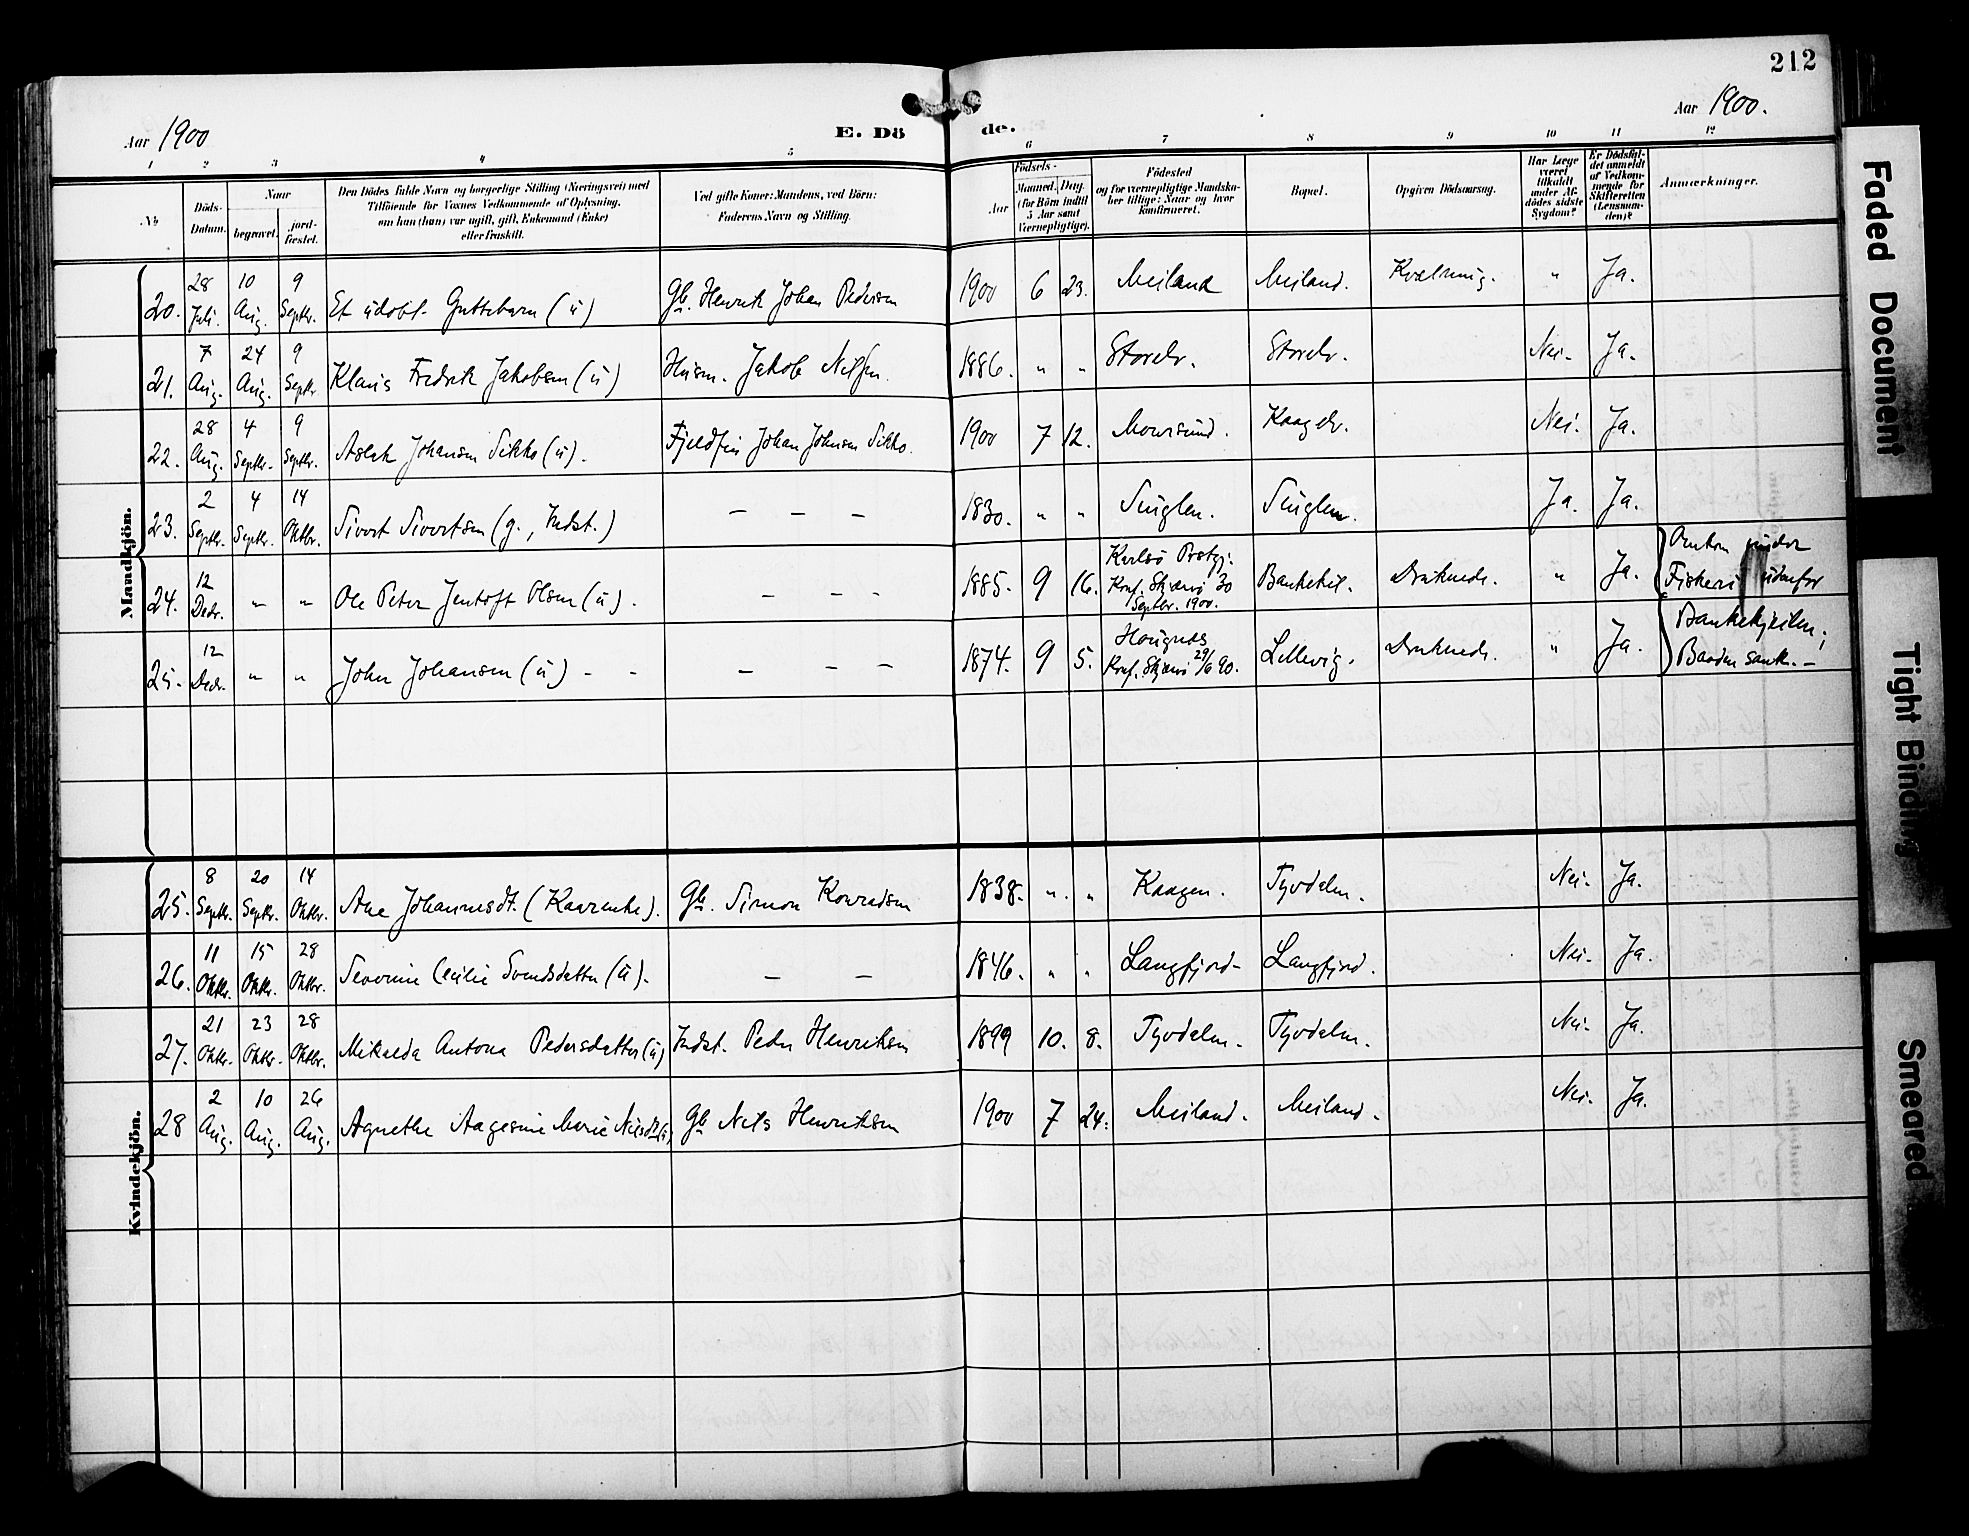 212
Aar 1900
E. Döde.
Aar 1900.
1 2 3 4 5 6 7 8 9 10 11 12
No.
Döds-Datum.
Naar
begravet.
jord-fæstet.
Den Dödes fulde Navn og borgerlige Stilling (Næringsvei) med
Tilföiende for Voxnes Vedkommende af Oplysning,
om han (hun) var ugift, gift, Enkemand (Enke)
eller fraskilt.
Ved gifte Koner: Mandens, ved Börn:
Faderens Navn og Stilling.
Födsels-
Aar
Maaned. Dag.
(for Börn indtil
5 Aar samt
Værnepligtige).
Födested
og for værnepligtige Mandskaber tillige: Naar og hvor
Konfirmeret.
Bopæl.
Opgiven Dödsaarsag.
Har Læge
været
tilkaldt
under Afdödes sidste
Sygdom?
Er Dödsfaldet anmeldt
af Vedkommende for
Skifteretten
(Lensmanden)?
Anmærkninger.
Mandkjön.
20. 28 Juli. 10 Aug. 9 Septbr. Et udöbt Guttebarn (u) Gb. Henrik Johan Pedersen 1900 6 23. Meiland Meiland. Kvælning. " Ja.
21. 7 Aug. 24 Aug. 9 Septbr. Klaus Fredrik Jakobsen (u) Husm. Jakob Nilsen. 1886. " " Storelv. Storelv. Nei. Ja.
22. 28 Aug. 4 Septbr. 9 Septbr. Aslak Johansen Sikko (u). Fjeldfin Johan Johnsen Sikko. 1900 7 12. Maursund. Kaagelv. Nei. Ja.
23. 2 Septbr. 4 Septbr. 14 Oktbr. Sivert Sivertsen (g., Indst.) — — — 1830. " " Singlen. Singlen. Ja. Ja.
24. 12 Decbr. " " Ole Peter Jentoft Olsen (u). — — — 1885. 9 16. Karlsö Prstgj. Konf. Skjærvö 30 Septbr. 1900. Bankekeil. Druknede. " Ja.
25. 12 Decbr. " " John Johansen (u) - - — — — 1874. 9 5. Haugnes Konf. Skjærvö 29/6 90. Lillevig. Druknede. " Ja.
Omkom under
Fiskeri udenfor
Bankekjeilen;
Baaden sank. —
Kvindekjön.
25. 8 Septbr. 20 Septbr. 14 Oktbr. Ane Johannesdt. (Kaarenke). Gb. Simon Konradsen 1838. " " Kaagen. Tyvdalen. Nei. Ja.
26. 11 Oktbr. 15 Oktbr. 28 Oktbr. Severine Cecilie Svendsdatter (u). — — 1846. " " Langfjord- Langfjord. Nei. Ja.
27. 21 Oktbr. 23 Oktbr. 28 Oktbr. Mikalda Antona Pedersdatter (u) Indst. Peder Henriksen 1899 10. 8. Tyvdalen. Tyvdalen. Nei. Ja.
28 2 Aug. 10 Aug. 26 Aug. Agnethe Aagesine Marie Nilsdt. (u) Gb Nils Henriksen 1900 7 24. Meiland. Meiland. Nei. Ja.
Faded Document
Tight Binding
Smeared